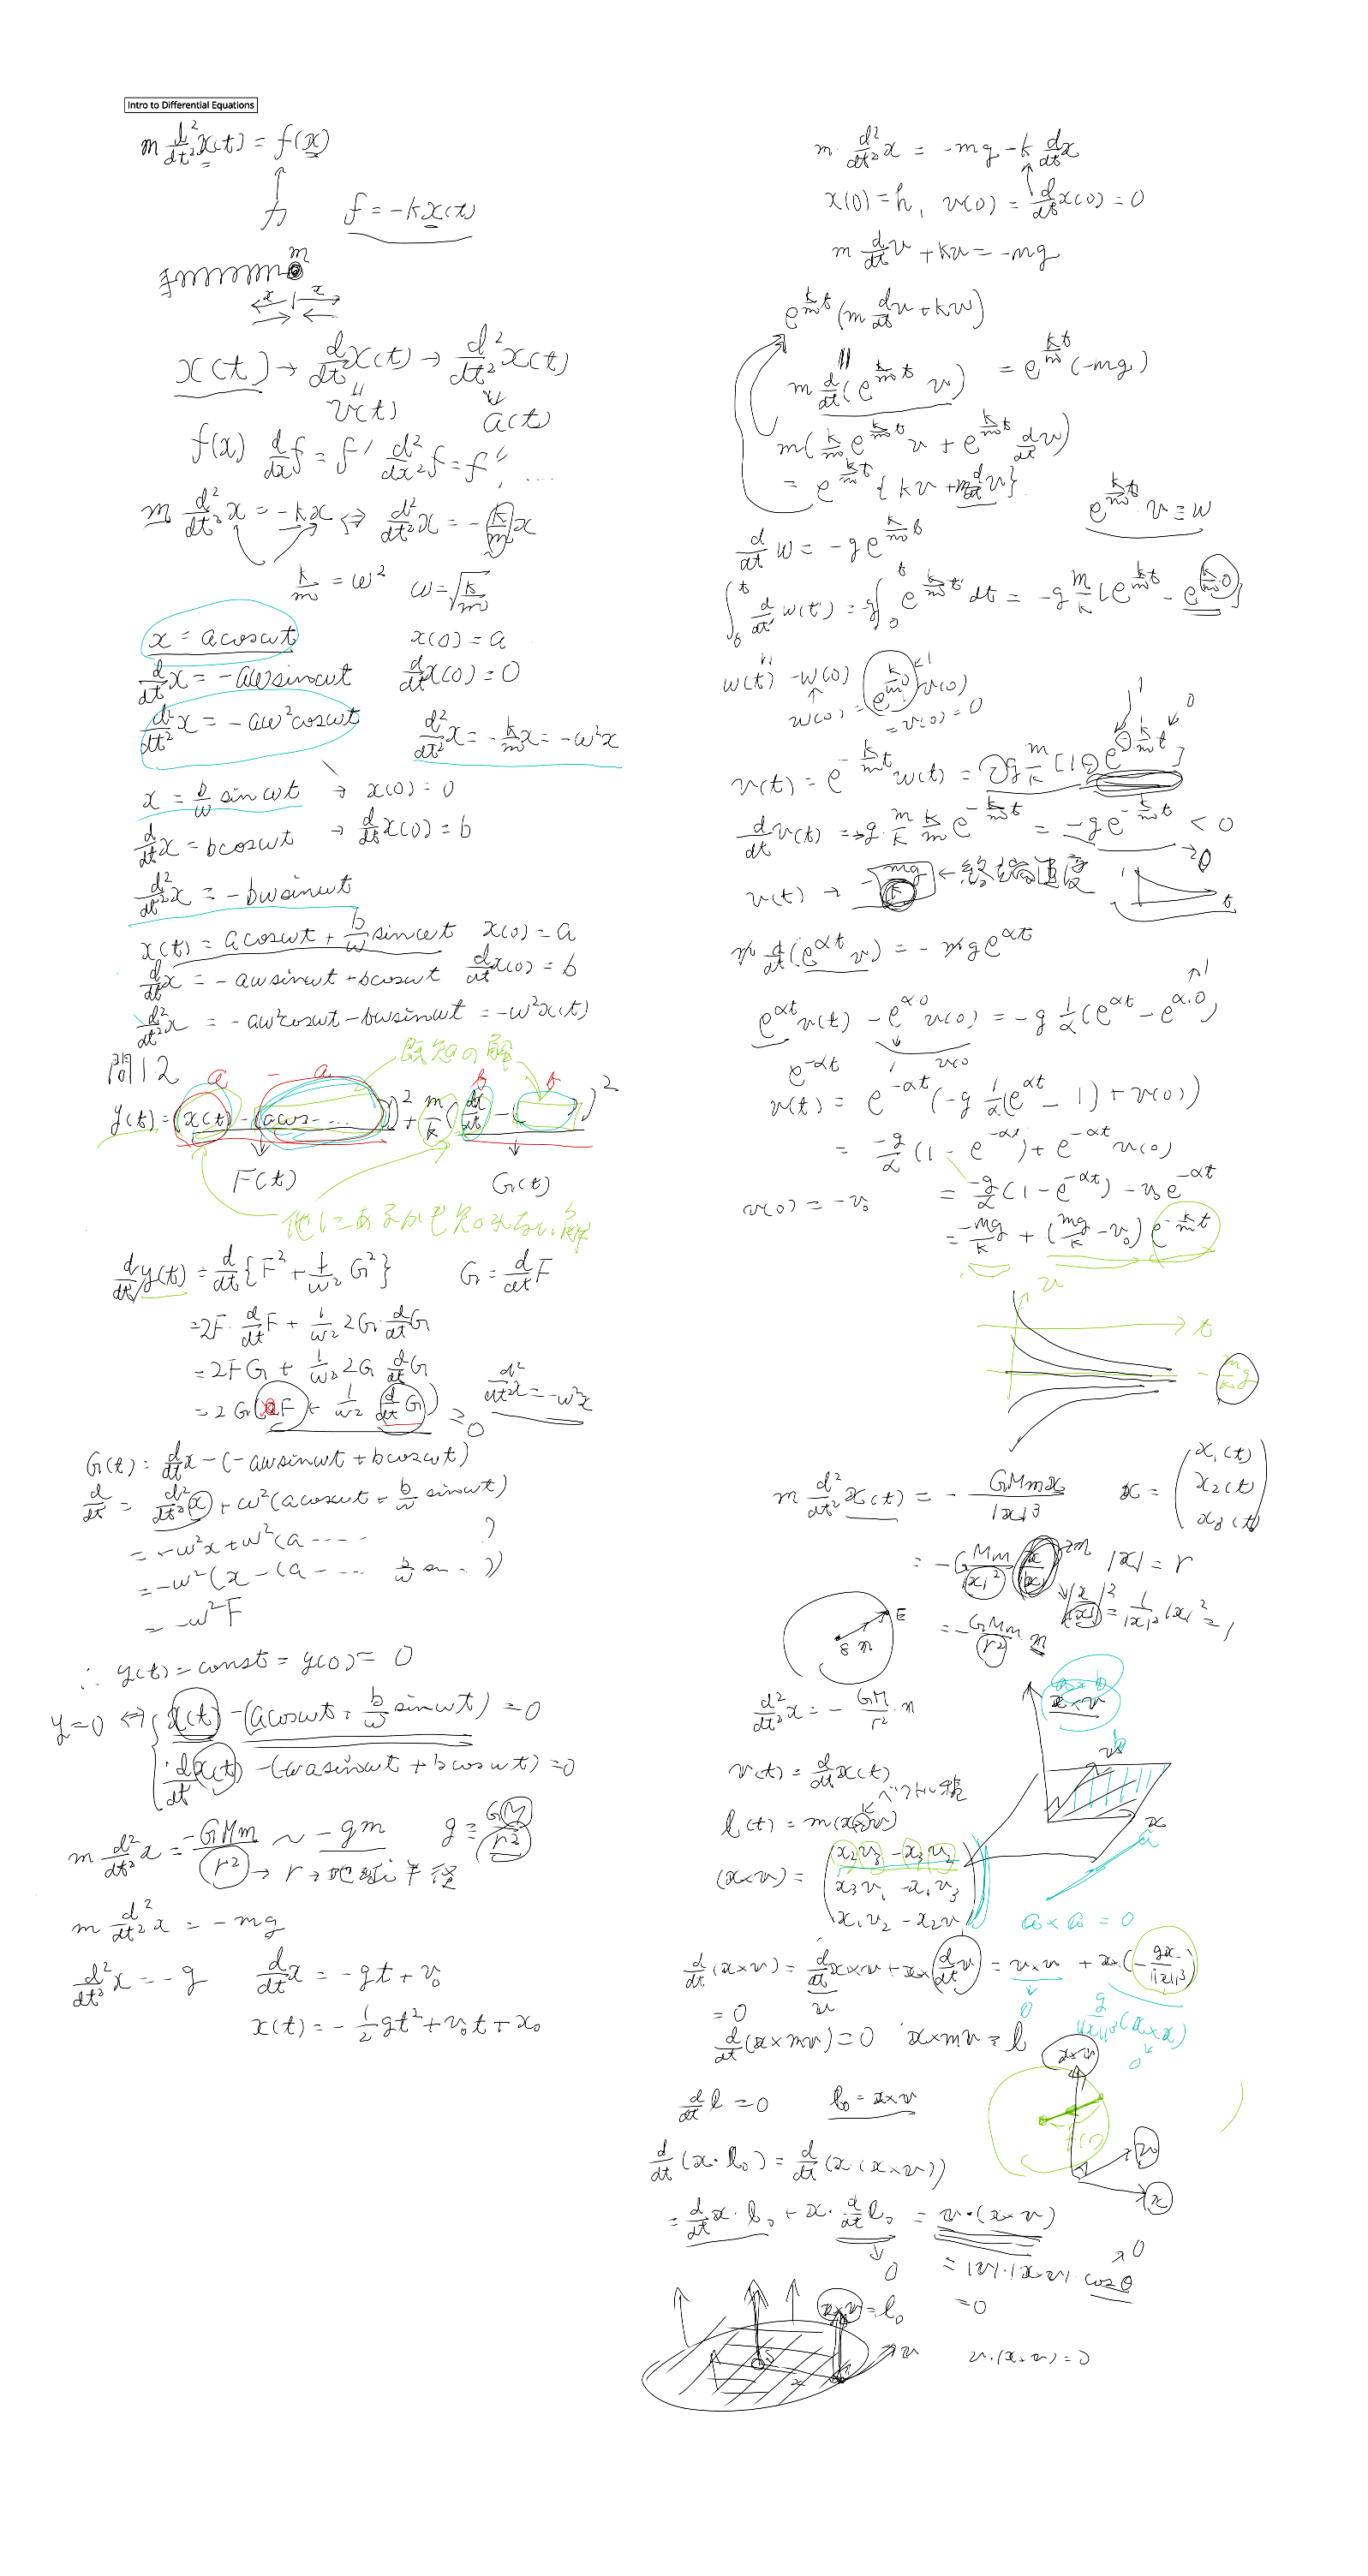 Intro to Differential Equations
m d²/dt² x(t) = f(x)
f = -kx(t)
m
x x
x(t) → d/dt x(t) → d²/dt² x(t)
v(t) a(t)
f(x) d/dx f = f′ d²/dx² f = f″, ...
m d²/dt² x = -kx ⇔ d²/dt² x = -(k/m)x
k/m = ω² ω = √(k/m)
x = a cos ωt x(0) = a
d/dt x = -aω sin ωt d/dt x(0) = 0
d²/dt² x = -aω² cos ωt d²/dt² x = -k/m x = -ω²x
x = b/ω sin ωt → x(0) = 0
d/dt x = b cos ωt → d/dt x(0) = b
d²/dt² x = -bω sin ωt
x(t) = a cos ωt + b/ω sin ωt x(0) = a
d/dt x = -aω sin ωt + b cos ωt d/dt x(0) = b
d²/dt² x = -aω² cos ωt - bω sin ωt = -ω²x(t)
問1.2
既知の解
a - a b b
y(t) = (x(t) - (a cos ...))² + m/k (dx/dt - ( ))²
F(t) G(t)
他にあるかも知れない解
d/dt y(t) = d/dt {F² + 1/ω² G²} G = d/dt F
= 2F · d/dt F + 1/ω² 2G · d/dt G
= 2FG + 1/ω² 2G d/dt G
= 2G(F + 1/ω² d/dt G) = 0 d²/dt² x = -ω²x
G(t) = d/dt x - (-aω sin ωt + b cos ωt)
d/dt = d²/dt² (x) + ω²(a cos ωt + b/ω sin ωt)
= -ω²x + ω²(a ---- )
= -ω²(x - (a - ... b/ω sin . ))
= -ω²F
∴ y(t) = const = y(0) = 0
y = 0 ⇔ { x(t) - (a cos ωt + b/ω sin ωt) = 0
d/dt x(t) - (-ωa sin ωt + b cos ωt) = 0
m d²/dt² x = -GMm/r² ~ -gm g = GM/r²
→ r → 地球半径
m d²/dt² x = -mg
d²/dt² x = -g d/dt x = -gt + v₀
x(t) = -1/2 gt² + v₀t + x₀
m · d²/dt² x = -mg - k d/dt x
x(0) = h, v(0) = d/dt x(0) = 0
m d/dt v + kv = -mg
e^{k/m t}(m d/dt v + kv)
m d/dt (e^{k/m t} v) = e^{k/m t}(-mg)
m(k/m e^{k/m t} v + e^{k/m t} d/dt v)
= e^{k/m t}{kv + m d/dt v}
e^{k/m t} · v ≡ w
d/dt w = -g e^{k/m t}
∫₀ᵗ d/dt w(t) = -g∫₀ᵗ e^{k/m t} dt = -g m/k {e^{k/m t} - e^{k/m · 0}}
w(t) - w(0)
w(0) = e^{k/m 0} v(0)
= v(0) = 0
v(t) = e^{-k/m t} w(t) = -g m/k [1 - e^{-k/m t}]
d/dt v(t) = -g · m/k k/m e^{-k/m t} = -g e^{-k/m t} < 0
→ 0
v(t) → -mg/k ← 終端速度
1 t
m d/dt (e^{αt} v) = -mg e^{αt}
e^{αt} v(t) - e^{α0} v(0) = -g 1/α (e^{αt} - e^{α·0})
e^{-αt} 1 v(0)
v(t) = e^{-αt}(-g 1/α (e^{αt} - 1) + v(0))
= -g/α (1 - e^{-αt}) + e^{-αt} v(0)
v(0) = -v₀ = -g/α (1 - e^{-αt}) - v₀e^{-αt}
= -mg/k + (mg/k - v₀) e^{-k/m t}
v
t
-m/k g
m d²/dt² x(t) = -GMmx/|x|³ x = (x₁(t) x₂(t) x₃(t))
= -G Mm/|x|² (x/|x|) n |x| = r
|x/|x||² = 1/|x|² |x|² = 1
E
S n
= -GMm/r² n
d²/dt² x = -GM/r² · n
a×b
x×v
v(t) = d/dt x(t)
ベクトル積
v b
l(t) = m(x×v)
x
a
(x×v) = (x₂v₃ - x₃v₂
x₃v₁ - x₁v₃
x₁v₂ - x₂v₁)
a×a = 0
d/dt (x×v) = d/dt x×v + x×(d/dt v) = v×v + x×(-gx/|x|³)
= 0 v 0 g/|x|³ (x×x)
d/dt (x×mv) = 0 x×mv = l 0
x×v
d/dt l = 0 l₀ = x×v
f(r)
d/dt (x·l₀) = d/dt (x·(x×v))
v
x
= d/dt x · l₀ + x · d/dt l₀ = v·(x×v)
0 = |v|·|x×v|·cos θ → 0
x×v = l₀ = 0
v v·(x×v) = 0